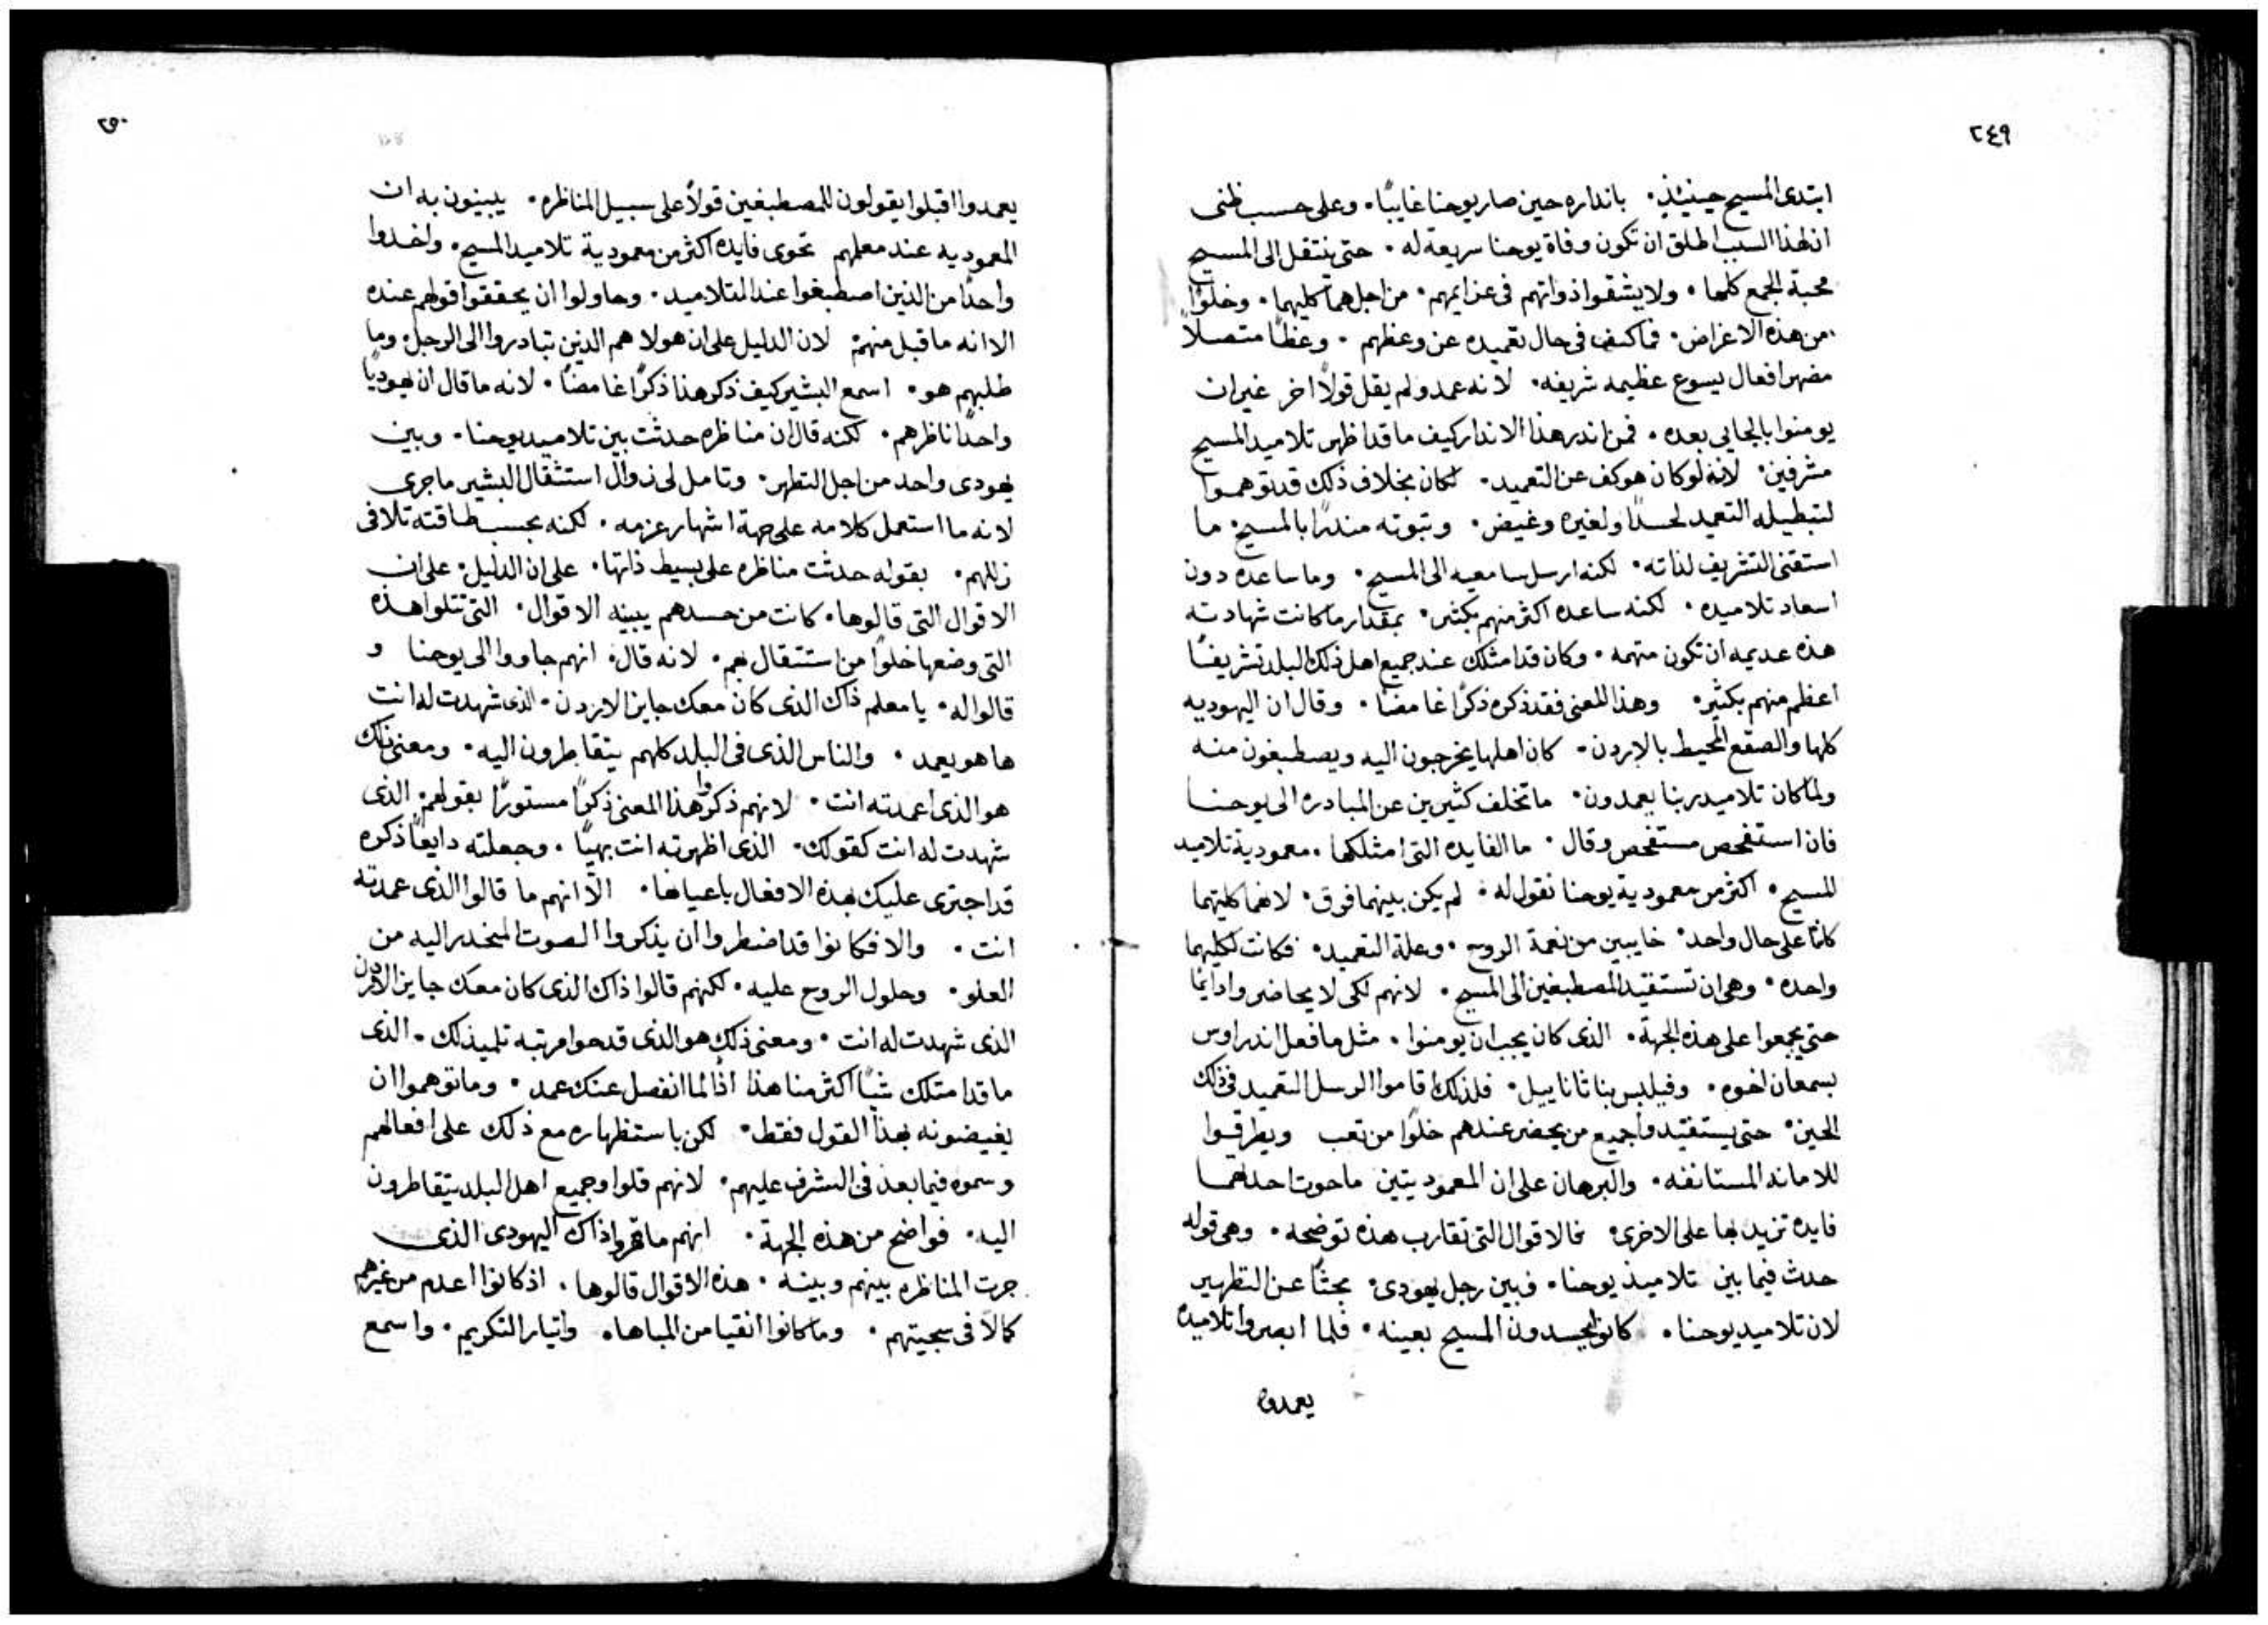 ٢٤٩
ابتدى المسيح حينيذٍ. بانداره حين صار يوحنا غايبًا. وعلى حسب ظنى
ان لهذا السبب اطلق ان تكون وفاة يوحنا سريعة له. حتى تنتقل الى المسيح
محبة الجمع كلها. ولا يشقوا ذواتهم فى عزايمهم. من اجلهما كليهما. وخلوًا
من هذه الاغراض. فما كف فى حال تعميده عن وعظهم. وعظًا متصلاً
مضهر افعال يسوع عظيمه شريفه. لانه عمد ولم يقل قولاً اخر غير ان
يومنوا بالجايى بعده. فمن اندر هذا الاندار كيف ما قد اظهر تلاميد المسيح
مشرفين. لانه لو كان هو كف عن التعميد. لكان بخلاف ذلك قد توهموا
لتبطيله التعمد لحسدًا ولغيره وغيض. وتبوته مندرًا بالمسيح. ما
استقنى التشريف لذاته. لكنه ارسل سامعيه الى المسيح. وما ساعده دون
اسعاد تلاميده. لكنه ساعده اكثر منهم بكثير. بمقدار ما كانت شهادته
هذه عديمه ان تكون متهمه. وكان قد امتلك عند جميع اهل ذلك البلد تشريفًا
اعظم منهم بكثير. وهذا المعنى فقد ذكره ذكرًا غامضًا. وقال ان اليهوديه
كلها والصقع المحيط بالاردن. كان اهلها يخرجون اليه ويصطبغون منه
ولما كان تلاميد ربنا يعمدون. ما تخلف كثيرين عن المبادره الى يوحنا
فان استفحص مستفحص وقال. ما الفايده التى امتلكها. معمودية تلاميد
المسيح. اكثر من معمودية يوحنا نقول له. لم يكن بينهما فرق. لانهما كليتهما
كانتا على حال واحد. خايبين من نعمة الروح. وعلة التعميد. فكانت لكليهما
واحده. وهى ان تستقيد المصطبغين الى المسيح. لانهم لكى لا يحاضروا دايمًا
حتى يجمعوا على هذه الجهة. الذى كان يجب ان يومنوا. مثل ما فعل اندراوس
بسمعان اخوه. وفيلبس بناثاناييل. فلذلك اقاموا الرسل التعميد فى ذلك
الحين. حتى يستقيدوا جميع من يحضر عندهم خلوًا من تعب ويطرقوا
للامانه المستانفه. والبرهان على ان المعموديتين ما حوت احداهما
فايده تزيد بها على الاخرى. فالاقوال التى تقارب هذه توضحه. وهى قوله
حدث فيما بين تلاميذ يوحنا. وبين رجل يهودى. بحثًا عن التطهير
لان تلاميد يوحنا. كانوا يحسدون المسيح بعينه. فلما ابصروا تلاميده
يعمدوا
٢٥٠
يعمدوا اقبلوا يقولون للمصطبغين قولاً على سبيل المناظره. يبينون به ان
المعموديه عند معلمهم تحوى فايده اكثر من معمودية تلاميد المسيح. واخدوا
واحدًا من الذين اصطبغوا عند التلاميد. وحاولوا ان يحققوا قولهم عنده
الا انه ما قبل منهم. لان الدليل على ان هولا هم الذين تبادروا الى الرجل. وما
طلبهم هو. اسمع البشير كيف ذكر هذا ذكرًا غامضًا. لانه ما قال ان يهوديًا
واحدًا ناظرهم. لكنه قال ان مناظره حدثت بين تلاميد يوحنا. وبين
يهودى واحد من اجل التطهر. وتامل لى زوال استثقال البشير ما جرى
لانه ما استعمل كلامه على جهة اشهار عزمه. لكنه بحسب طاقته تلافى
زللهم. بقوله حدثت مناظره على بسيط ذاتها. على ان الدليل. على ان
الاقوال التى قالوها. كانت من حسدهم يبينه الاقوال. التى تتلوا هذه
التى وضعها خلوًا من استتقال بهم. لانه قال. انهم جاووا الى يوحنا و
قالوا له. يا معلم ذاك الذى كان معك جايز الاردن. الذى شهدت له انت
ها هو يعمد. والناس الذى فى البلد كلهم يتقاطرون اليه. ومعنى ذلك
هو الذى اعمدته انت. لانهم ذكروا هذا المعنى ذكرًا مستورًا بقولهم. الذى
شهدت له انت كقولك. الذى اظهرته انت بهيًا. وجعلته دايعًا ذكره
قد اجترى عليك بهذه الافعال باعيانها. الاّ انهم ما قالوا الذى عمدته
انت. والا فكانوا قد اضطروا ان يذكروا الصوت المنحدر اليه من
العلو. وحلول الروح عليه. لكنهم قالوا ذاك الذى كان معك جايز الاردن
الذى شهدت له انت. ومعنى ذلك هو الذى قد حوا مرتبه تلميذك. الذى
ما قد امتلك شيًا اكثر منا هذا اذًا لما انفصل عنك عمد. وما توهموا ان
يغيضونه بهذا القول فقط. لكن باستظهاره مع ذلك على افعالهم
وسموه فيما بعد فى الشرف عليهم. لانهم قلوا وجميع اهل البلد يتقاطرون
اليه. فواضح من هذه الجهة. انهم ما قهروا ذاك اليهودى الذى
جرت المناظره بينهم وبينه. هذه الاقوال قالوها. اذ كانوا اعدم من غيرهم
كمالاً فى سجيتهم. وما كانوا انقيا من المباهاه وايتار التكريم. واسمع